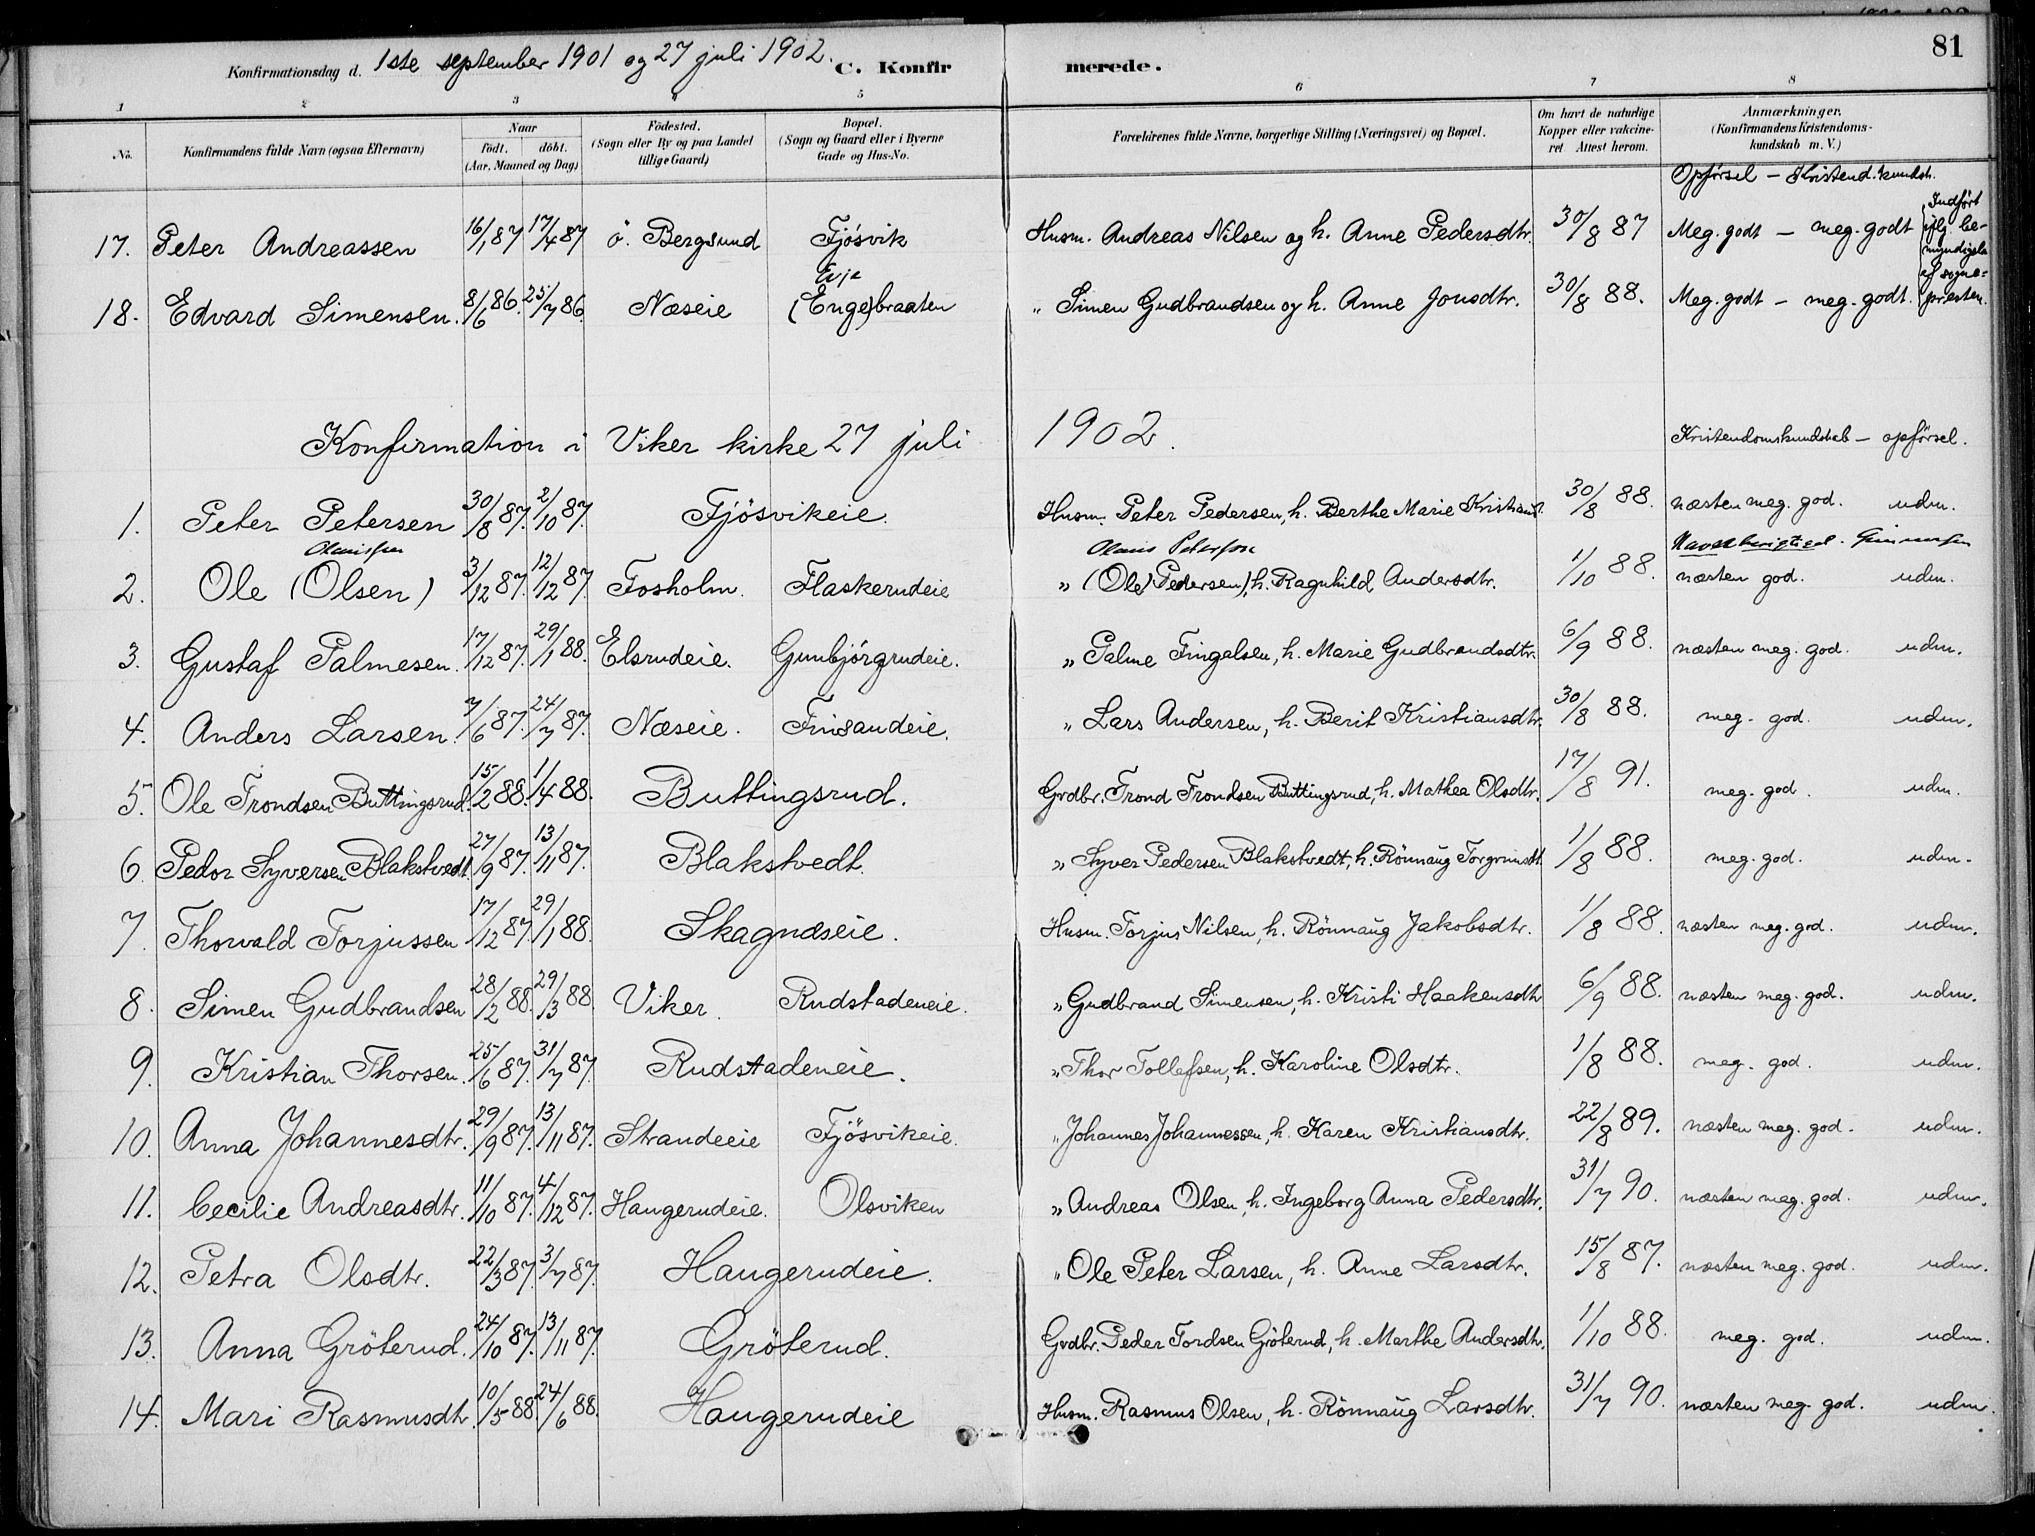 81
Konfirmationsdag d. 1ste september 1901 og 27 juli 1902. C. Konfirmerede.
1 2 3 4 5 6 7 8
No. Konfirmandens fulde Navn (ogsaa Efternavn) Naar födt. döbt. (Aar, Maaned og Dag) Födested. (Sogn eller By og paa Landet tillige Gaard) Bopæl. (Sogn og Gaard eller i Byerne Gade og Hus-No. Forældrenes fulde Navne, borgerlige Stilling (Næringsvei) og Bopæl. Om havt de naturlige Kopper eller vakcineret Attest herom. Anmærkninger. (Konfirmandens Kristendomskundskab m. V.)
Opførsel – Kristend.kundsk.
17. Peter Andreassen 16/1 87 17/4 87 ö. Bergsund Fjösvik Husm. Andreas Nilsen og h. Anne Pedersdtr. 30/8 87 Meg. godt – meg. godt Indført iflg. bemyndigelse af sognepresten.
Evje
18. Edvard Simensen. 8/6 86. 25/7 86. Næseie (Enge)braaten " Simen Gudbrandsen og h. Anne Jonsdtr. 30/8 88. Meg. godt – meg. godt.
Konfirmation i Viker kirke 27 juli 1902. Kristendomskundskab – opförsel.
1. Peter Petersen 30/8 87. 2/10 87. Fjösvikeie. Husm. Peter Pedersen, h. Berthe Marie Kristiansd. 30/8 88. næsten meg. god. udm.
Olaussen Olaus Petersen
2. Ole (Olsen) 3/12 87. 12/12 87. Fosholm. Flaskerudeie " (Ole Pedersen), h. Ragnhild Andersdtr. 1/10 88. næsten god. udm.
3. Gustaf Palmesen. 17/12 87. 29/1 88. Elsrudeie. Gunbjörgrudeie. " Palme Fingalsen, h. Marie Gudbrandsdtr. 6/9 88. næsten meg. god. udm.
4. Anders Larsen. 7/6 87. 24/7 87. Næseie. Finsandeie. " Lars Andersen, h. Berit Kristiansdtr. 30/8 88. meg. god. udm.
5. Ole Trondsen Buttingsrud. 15/2 88. 1/4 88. Buttingsrud. Grdbr. Trond Trondsen Buttingsrud, h. Mathea Olsdtr. 17/8 91. meg. god. udm.
6. Peder Syversen Blakstvedt 27/9 87. 13/11 87. Blakstvedt. " Syver Pedersen Blakstvedt, h. Rönnaug Torgrimsdt. 1/8 88. meg. god. udm.
7. Thorvald Torjussen 17/12 87. 29/1 88. Skagnæseie. Husm. Torjus Nilsen, h. Rönnaug Jakobsdtr. 1/8 88. næsten meg. god. udm.
8. Simen Gudbrandsen 28/2 88. 29/3 88. Viker. Rudstadeneie. " Gudbrand Simensen, h. Kristi Haakensdtr 6/9 88. næsten meg. god. udm.
9. Kristian Thorsen. 25/6 87. 31/7 87. Rudstadeneie. " Thor Tollefsen, h. Karoline Olsdtr. 1/8 88. meg. god. udm.
10. Anna Johannesdtr. 29/9 87. 13/11 87. Strandeeie Fjösvikeie. " Johannes Johannessen, h. Karen Kristiansdtr. 22/8 89. næsten meg. god. udm.
11. Cecilie Andreasdtr. 11/10 87. 4/12 87. Haugerudeie. Olsviken " Andreas Olsen, h. Ingeborg Anna Pedersdtr. 31/7 90. næsten meg. god. udm.
12. Petra Olsdtr. 22/3 87. 3/7 87. Haugerudeie. " Ole Peter Larsen, h. Anne Larsdtr. 15/8 87. næsten meg. god. udm.
13. Anna Gröterud. 24/10 87. 13/11 87. Gröterud. Grdbr. Peder Tordsen Gröterud, h. Marthe Andersdtr. 1/10 88. meg. god. udm.
14. Mari Rasmusdtr. 10/5 88. 24/6 88. Haugerudeie Husm. Rasmus Olsen, h. Rönnaug Larsdtr. 31/7 90. næsten meg. god. udm.